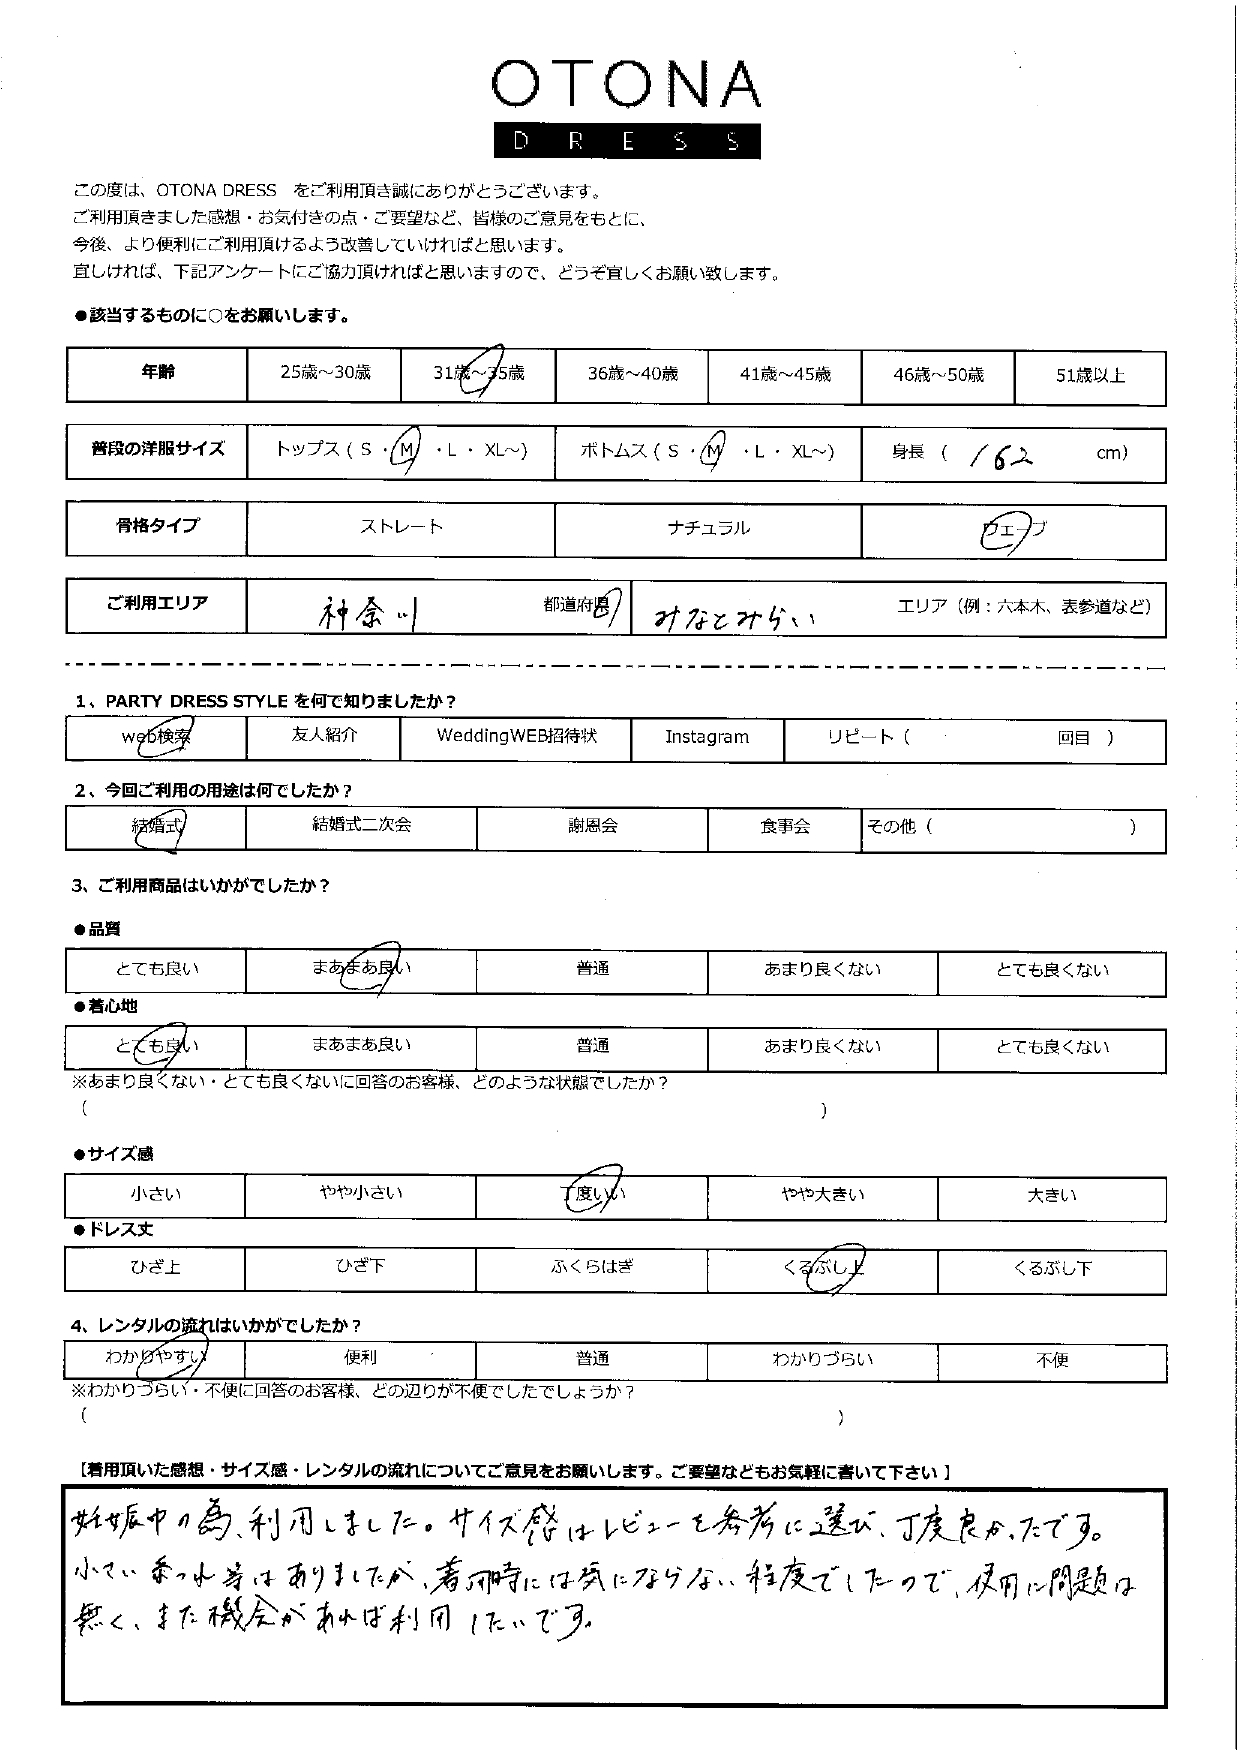 OTONA
DRESS
この度は、OTONA DRESS をご利用頂き誠にありがとうございます。
ご利用頂きました感想・お気付きの点・ご要望など、皆様のご意見をもとに、
今後、より便利にご利用頂けるよう改善していければと思います。
宜しければ、下記アンケートにご協力頂ければと思いますので、どうぞ宜しくお願い致します。
●該当するものに○をお願いします。
年齢 25歳～30歳 31歳～35歳 36歳～40歳 41歳～45歳 46歳～50歳 51歳以上
普段の洋服サイズ トップス ( S ・ M ・L ・ XL～) ボトムス ( S ・ M ・L ・ XL～) 身長 ( 162 cm)
骨格タイプ ストレート ナチュラル ウェーブ
ご利用エリア 神奈川 都道府県 みなとみらい エリア（例：六本木、表参道など）
1、PARTY DRESS STYLE を何で知りましたか？
web検索 友人紹介 WeddingWEB招待状 Instagram リピート（ 回目 ）
2、今回ご利用の用途は何でしたか？
結婚式 結婚式二次会 謝恩会 食事会 その他（ ）
3、ご利用商品はいかがでしたか？
●品質
とても良い まあまあ良い 普通 あまり良くない とても良くない
●着心地
とても良い まあまあ良い 普通 あまり良くない とても良くない
※あまり良くない・とても良くないに回答のお客様、どのような状態でしたか？
（ ）
●サイズ感
小さい やや小さい 丁度いい やや大きい 大きい
●ドレス丈
ひざ上 ひざ下 ふくらはぎ くるぶし上 くるぶし下
4、レンタルの流れはいかがでしたか？
わかりやすい 便利 普通 わかりづらい 不便
※わかりづらい・不便に回答のお客様、どの辺りが不便でしたでしょうか？
（ ）
【着用頂いた感想・サイズ感・レンタルの流れについてご意見をお願いします。ご要望などもお気軽に書いて下さい】
妊娠中の為、利用しました。サイズ感はレビューを参考に選び、丁度良かったです。
小さい糸つれ等はありましたが、着用時には気にならない程度でしたので、使用に問題は
無く、また機会があれば利用したいです。